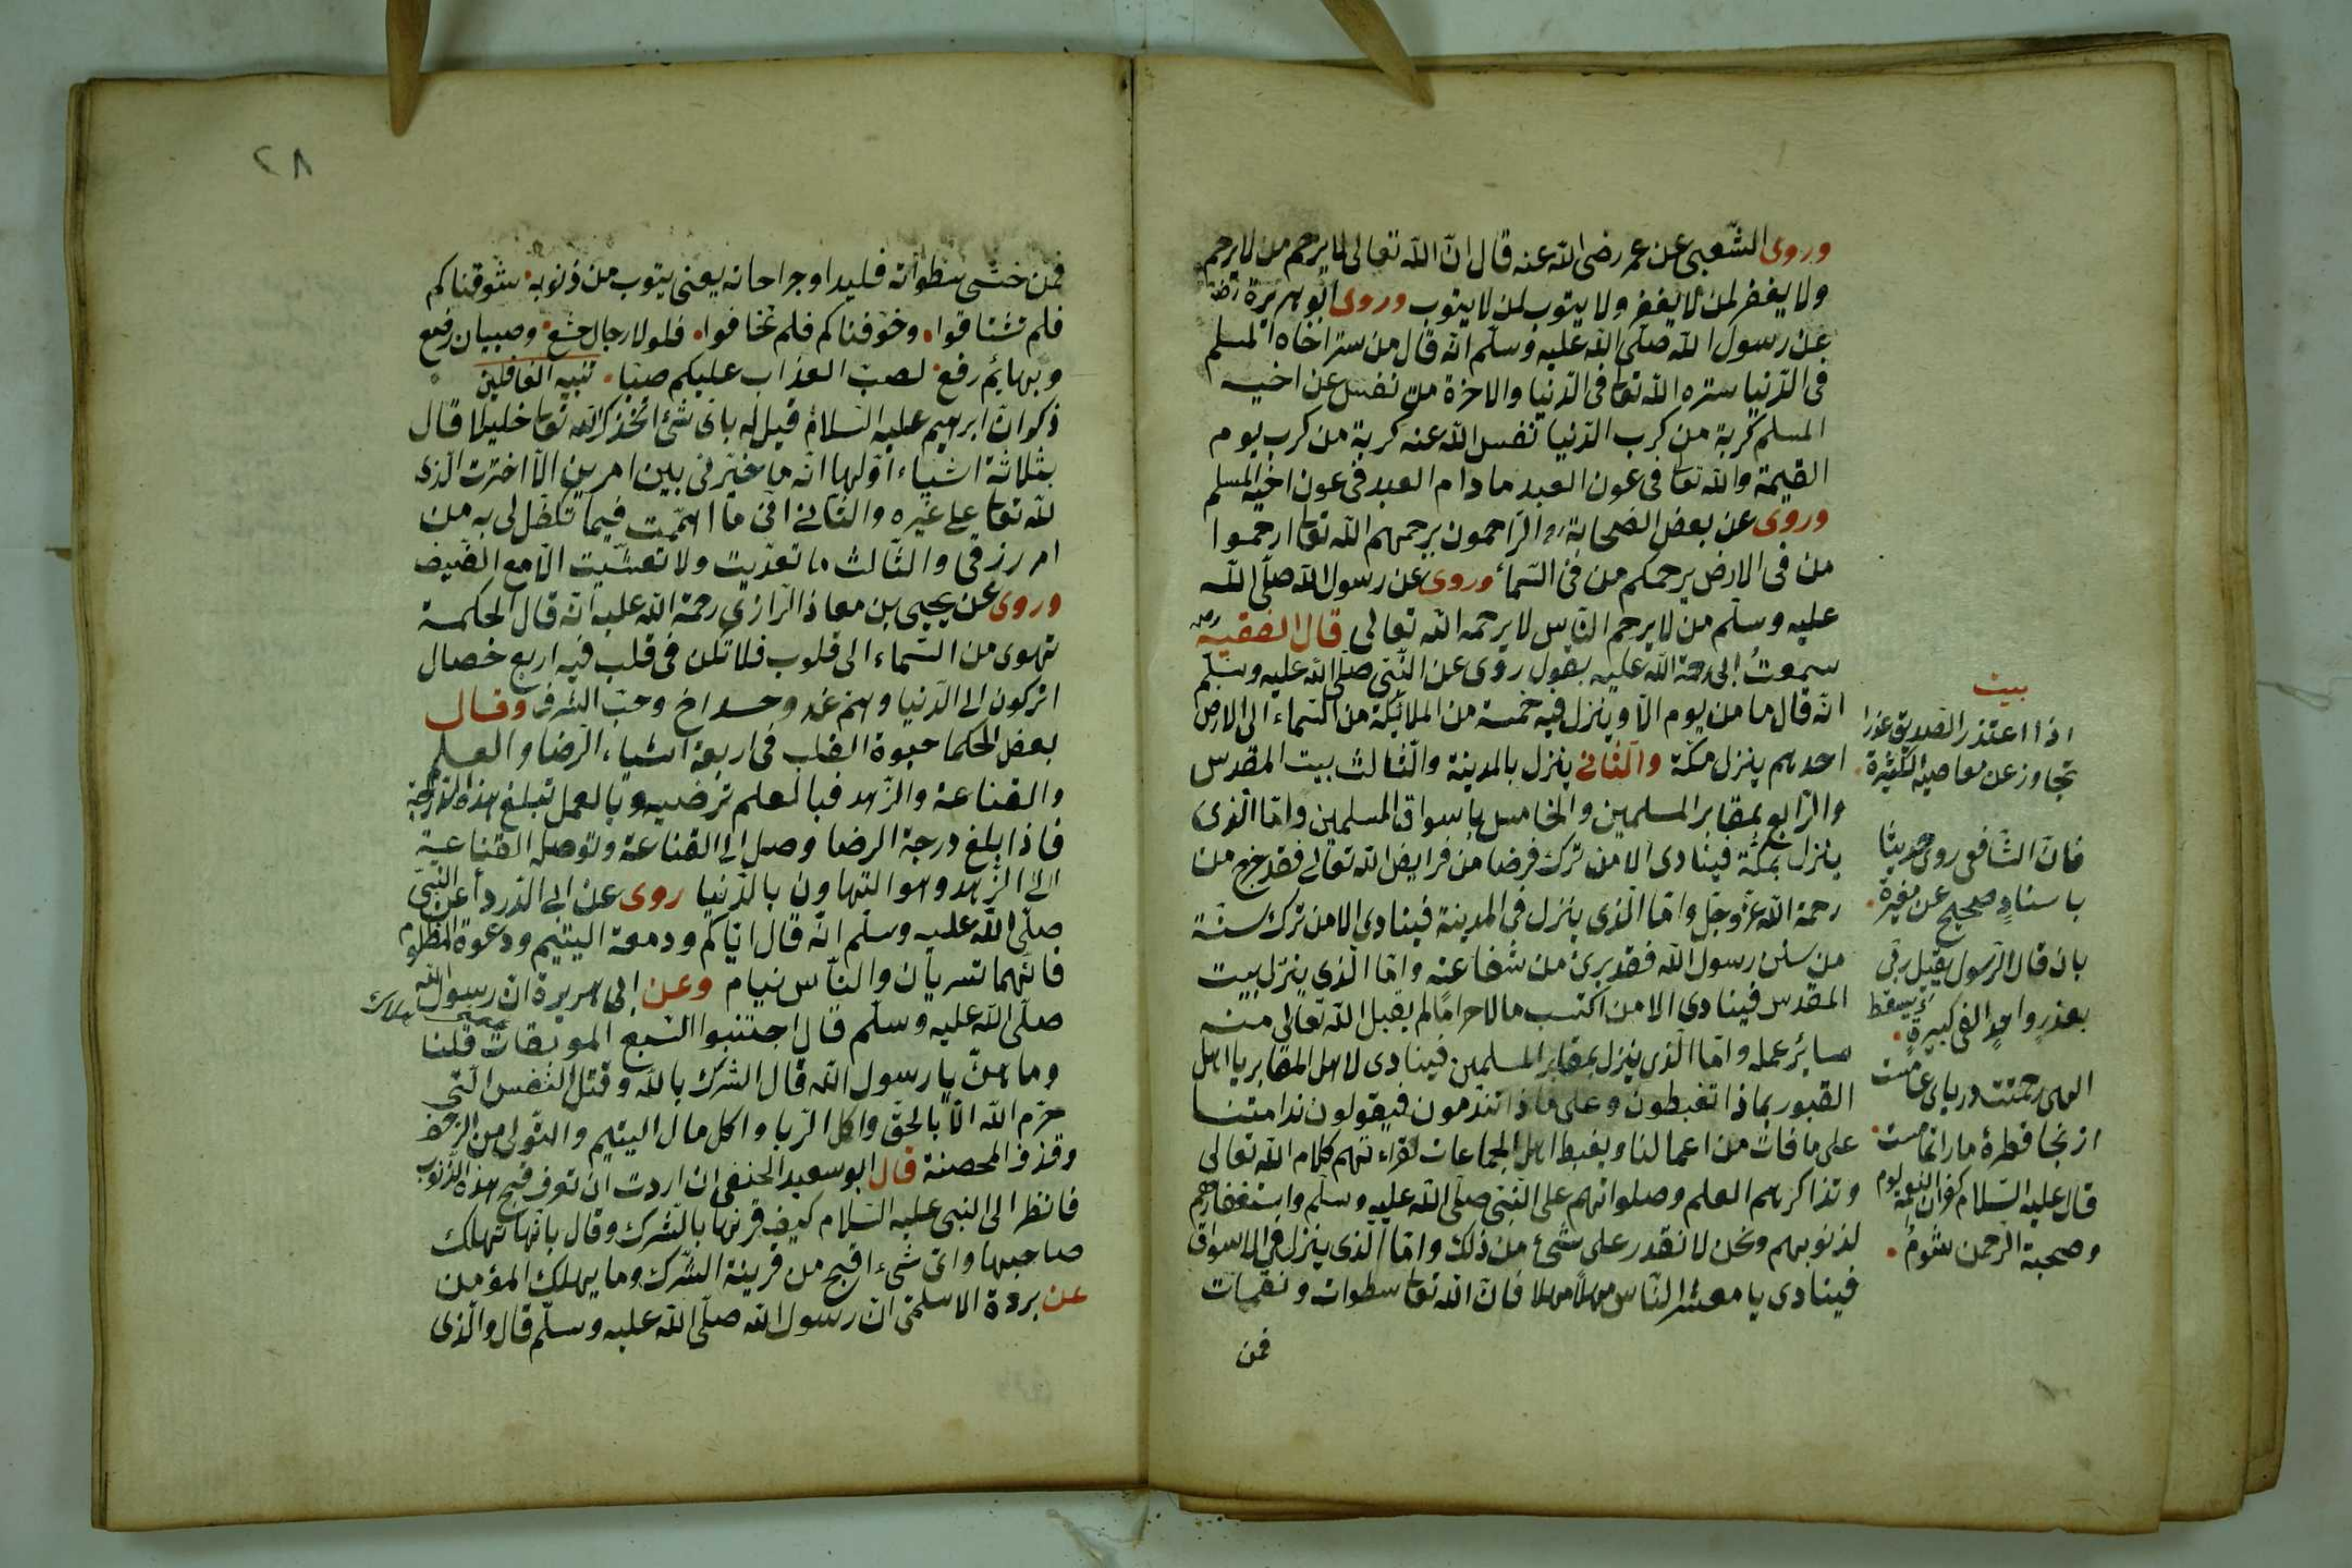 وروى الشعبى عن عمر رضى الله عنه قال ان الله تعالى لا يرحم من لا يرحم
ولا يغفر لمن لا يغفر ولا يتوب لمن لا يتوب وروى ابو هريرة رضه
عن رسول الله صلى الله عليه وسلم انه قال من ستر اخاه المسلم
فى الدنيا ستره الله تعا فى الدنيا والاخرة من نفس عن اخيه
المسلم كربة من كرب الدنيا نفس الله عنه كربة من كرب يوم
القيمة والله تعا فى عون العبد مادام العبد فى عون اخيه المسلم
وروى عن بعض الصحابة الراحمون يرحمهم الله تعا ارحموا
من فى الارض يرحمكم من فى السماء وروى عن رسول الله صلى الله
عليه وسلم من لا يرحم الناس لا يرحمه الله تعالى قال الفقيه
سمعت ابى رحمة الله عليه يقول روى عن النبى صلى الله عليه وسلم
انه قال ما من يوم الا وينزل فيه خمسة من الملائكة من السماء الى الارض
احدهم ينزل مكة والثانى ينزل بالمدينة والثالث بيت المقدس
والرابع بمقابر المسلمين والخامس باسواق المسلمين واما الذى
ينزل بمكة فينادى الا من ترك فرضا من فرايض الله تعالى فقد خرج من
رحمة الله عز وجل واما الذى ينزل فى المدينة فينادى الا من ترك سنة
من سنن رسول الله فقد برئ من شفاعته واما الذى ينزل بيت
المقدس فينادى الا من اكتسب مالا حراما لم يقبل الله تعالى منه
سائر عمله واما الذى ينزل بمقابر المسلمين فينادى لاهل المقابر يا اهل
القبور بماذا تغبطون وعلى ماذا تندمون فيقولون ندامتنا
على ما فات من اعمالنا ويغبط اهل الجماعات لقراءتهم كلام الله تعالى
وتذاكرهم العلم وصلواتهم على النبى صلى الله عليه وسلم واستغفارهم
لذنوبهم ونحن لا نقدر على شئ من ذلك واما الذى ينزل فى الاسواق
فينادى يا معشر الناس مهلا مهلا فان الله تعا سطوات ونقمات
فمن
بيت
اذا اعتذر الصديق عذرا
تجاوز عن معاصيه الكثيرة
فان الشافعى روى حديثا
باسناد صحيح عن مغيرة
بان قال الرسول يقيل ربى
بعذر واحد الفى كبيرة
الهى رحمتت درياى عامست
از نجا قطرهٔ مارا تمامست
قال عليه السلام
وصحبة الرحمن شوم
٢٨
فمن خشى سطواته فليداو جراحاته يعنى يتوب من ذنوبه شوقناكم
فلم تشتاقوا وخوفناكم فلم تخافوا فلولا رجال خشع وصبيان رضع
وبهائم رفع لصب العذاب عليكم صبا تنبيه الغافلين
ذكر ان ابرهيم عليه السلام قيل له باى شئ اتخذك الله تعا خليلا قال
بثلاثة اشياء اولها انه ما خيرنى بين امرين الا اخترت الذى
لله تعا على غيره والثانى انى ما اهممت فيما تكفل لى به من
امر رزقى والثالث ما تغديت ولا تعشيت الا مع الضيف
وروى عن يحيى بن معاذ الرازى رحمة الله عليه انه قال الحكمة
تهوى من السماء الى قلوب فلا تكن فى قلب فيه اربع خصال
الركون الى الدنيا وهم غد وحسد اخ وحب الشرف وقال
بعض الحكما حيوة القلب فى اربعة اشياء الرضا والعلم
والقناعة والزهد فبالعلم ترضيه وبالعمل تبلغ هذه الدرجة
فاذا بلغ درجة الرضا وصل الى القناعة وتوصله القناعة
الى الزهد وهو التهاون بالدنيا روى عن ابى الدرداء عن النبى
صلى الله عليه وسلم انه قال اياكم ودمعة اليتيم ودعوة المظلوم
فانهما تسريان والناس نيام وعن ابى هريرة ان رسول الله
صلى الله عليه وسلم قال اجتنبوا السبع الموبقات قلنا
وما هن يا رسول الله قال الشرك بالله وقتل النفس التى
حرم الله الا بالحق واكل الربا واكل مال اليتيم والتولى من الزحف
وقذف المحصنة قال ابو سعيد الحنفى ان اردت ان تعرف قبح هذه الذنوب
فانظر الى النبى عليه السلام كيف قرنها بالشرك وقال بانها تهلك
صاحبها واى شىء اقبح من قرينة الشرك وما يهلك المؤمن
عن بردة الاسلمى ان رسول الله صلى الله عليه وسلم قال والذى